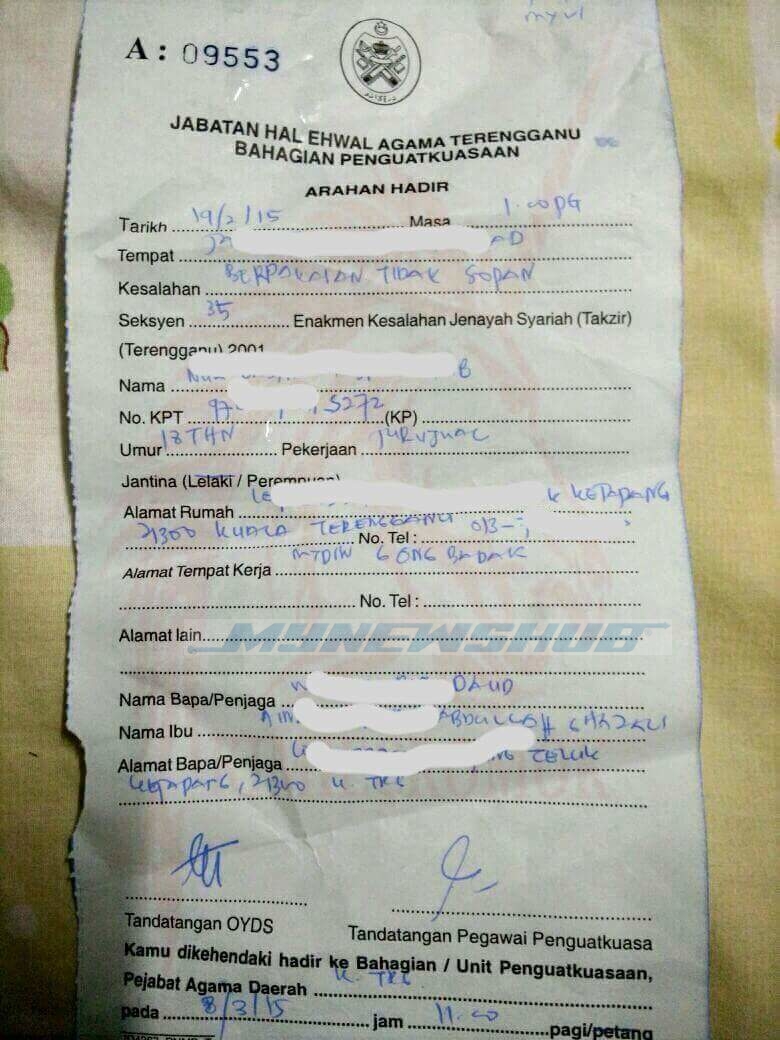 myvi
A : 09553
JABATAN HAL EHWAL AGAMA TERENGGANU
BAHAGIAN PENGUATKUASAAN
ARAHAN HADIR
Tarikh 19/2/15 Masa 1.00 PG
Tempat AD
Kesalahan BERPAKAIAN TIDAK SOPAN
Seksyen 35 Enakmen Kesalahan Jenayah Syariah (Takzir)
(Terengganu) 2001
Nama B
No. KPT 97 5272 (KP)
Umur 18 THN Pekerjaan JURUJUAL
Jantina (Lelaki / Perempuan)
Alamat Rumah K KETAPANG
21300 KUALA TERENGGANU No. Tel : 013-
Alamat Tempat Kerja MYDIN GONG BADAK
No. Tel :
Alamat lain
MYNEWSHUB
Nama Bapa/Penjaga DAUD
Nama Ibu ABDULLAH GHAZALI
Alamat Bapa/Penjaga TELUK
KETAPANG, 21300 K. TRG
Tandatangan OYDS Tandatangan Pegawai Penguatkuasa
Kamu dikehendaki hadir ke Bahagian / Unit Penguatkuasaan,
Pejabat Agama Daerah K. TRG
pada 8/3/15 jam 11.00 pagi/petang